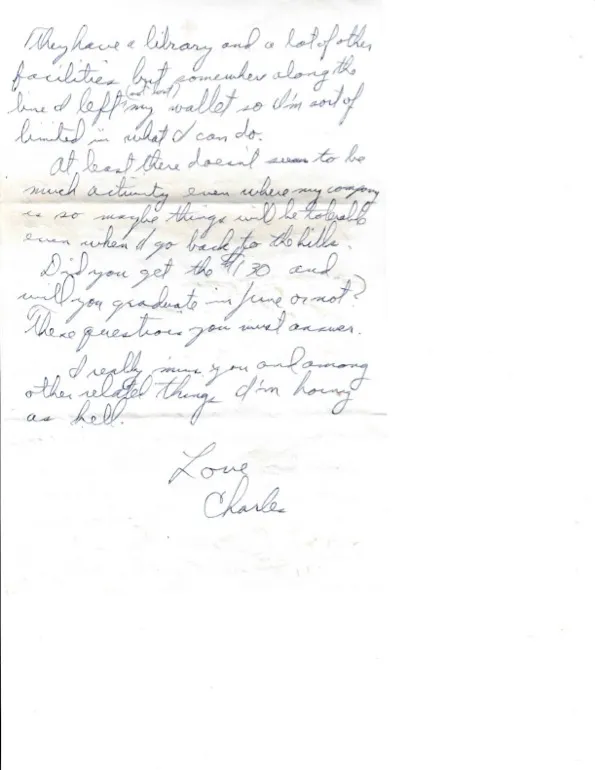 They have a library and a lot of other
facilities but somewhere along the
line I left (not lost) my wallet so I'm sort of
limited in what I can do.
At least there doesn't seem to be
much activity even where my company
is so maybe things will be tolerable
even when I go back to the hills.
Did you get the $130 and
will you graduate in June or not?
These questions you must answer.
I really miss you and among
other related things I'm horny
as hell.
Love
Charles